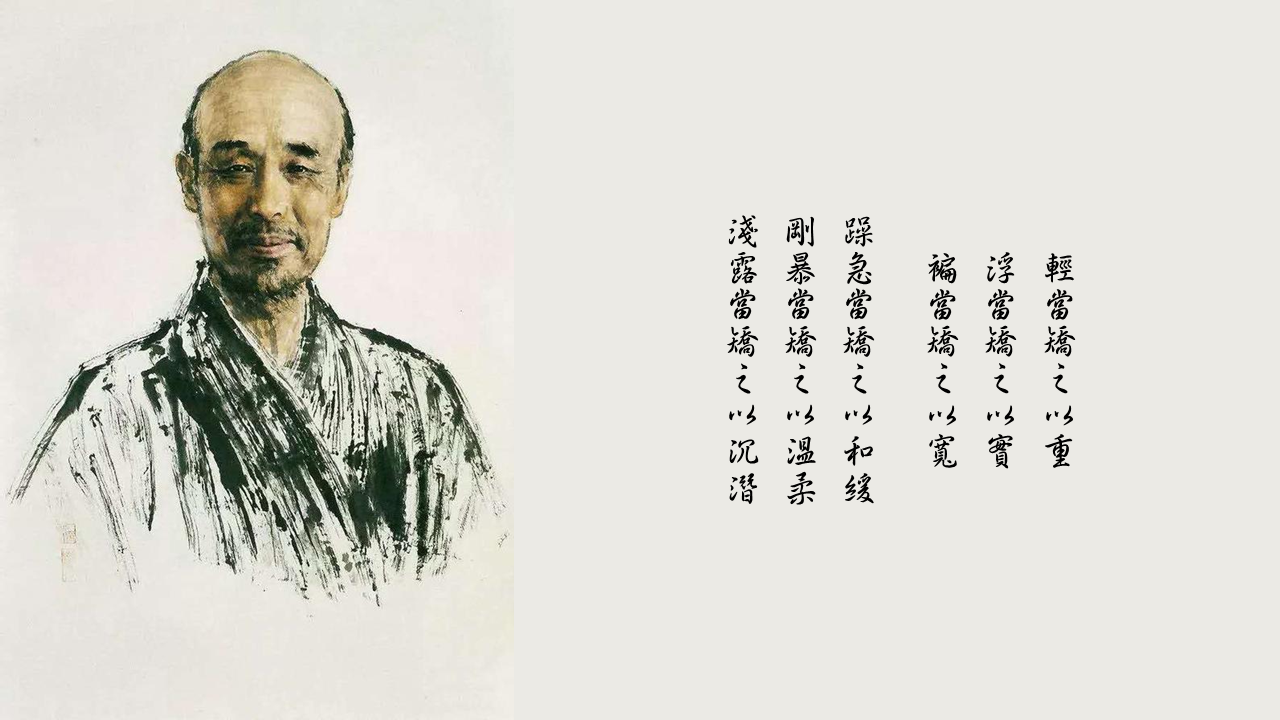 輕當矯之以重
浮當矯之以實
褊當矯之以寬
躁急當矯之以和緩
剛暴當矯之以溫柔
淺露當矯之以沉潛